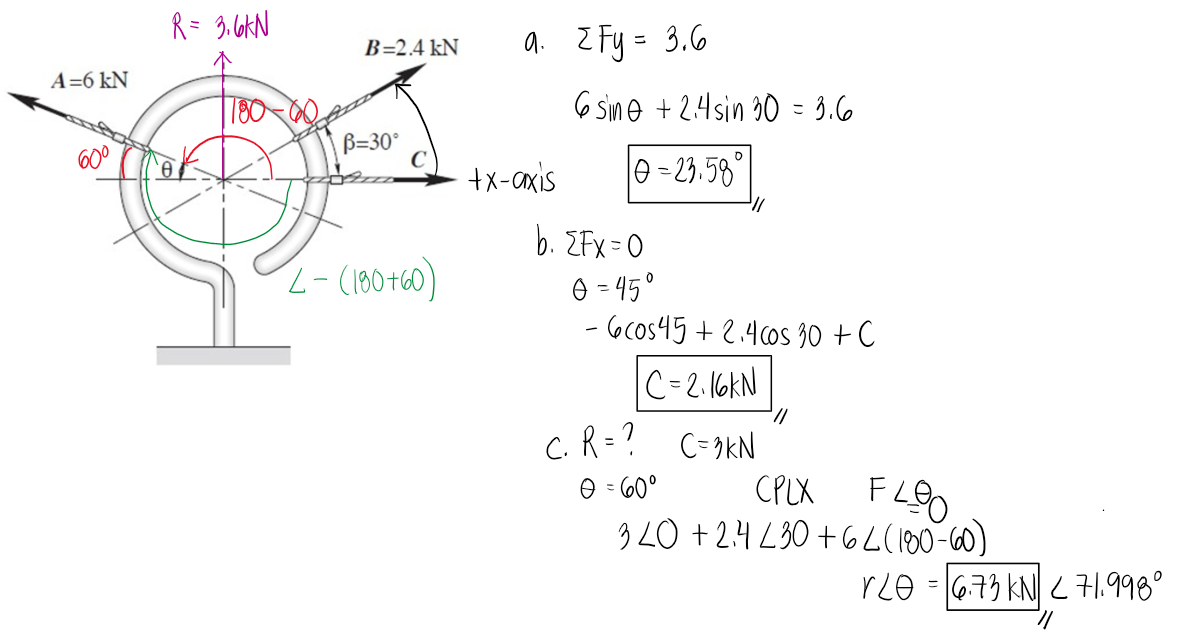 R = 3.6kN
B=2.4 kN
A=6 kN
180-60
60°
θ
β=30°
C
+x-axis
∠-(180+60)
a. ΣFy = 3.6
6 sinθ + 2.4 sin 30 = 3.6
θ = 23.58°
b. ΣFx = 0
θ = 45°
- 6cos45 + 2.4cos 30 + C
C = 2.16kN
c. R = ? C=3kN
θ = 60° CPLX F∠θ
= 0
3∠0 + 2.4∠30 + 6∠(180-60)
r∠θ = 6.73 kN ∠ 71.998°